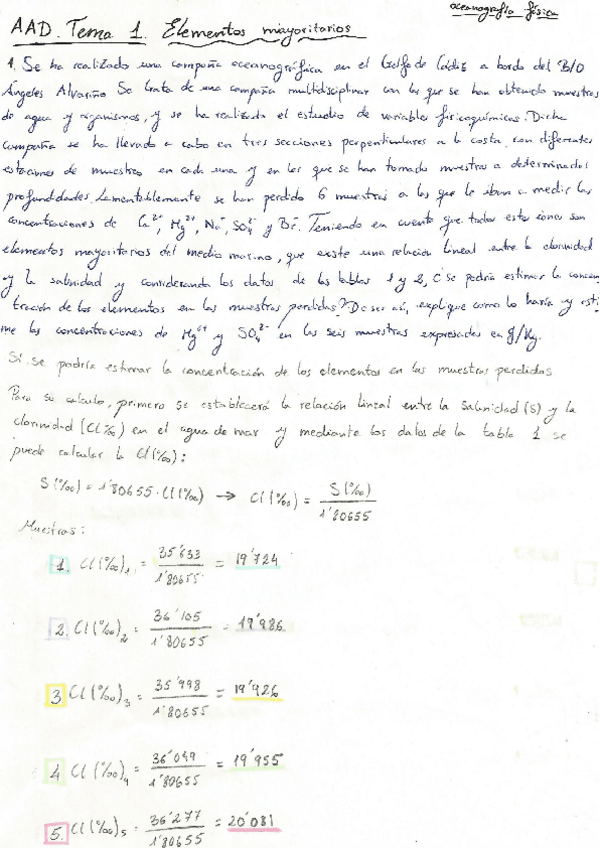 oceanografía física
AAD. Tema 1. Elementos mayoritarios
1. Se ha realizado una campaña oceanográfica en el Golfo de Cádiz a bordo del B/O
Ángeles Alvariño Se trata de una campaña multidisciplinar con los que se han obtenido muestras
de agua y organismos, y se ha realizado el estudio de variables fisicoquímicas. Dicha
campaña se ha llevado a cabo en tres secciones perpendiculares a la costa con diferentes
estaciones de muestreo en cada una y en los que se han tomado muestras a determinadas
profundidades. Lamentablemente se han perdido 6 muestras a las que le iban a medir las
concentraciones de Ca²⁺, Mg²⁺, Na⁺, SO₄²⁻ y Br⁻. Teniendo en cuenta que todos estos iones son
elementos mayoritarios del medio marino, que existe una relación lineal entre la clorinidad
y la salinidad y considerando los datos de las tablas 1 y 2, ¿se podría estimar la concen-
tración de los elementos en las muestras perdidas? De ser así, explique como lo haría y esti-
me las concentraciones de Mg²⁺ y SO₄²⁻ en las seis muestras expresadas en g/Kg.
Sí se podría estimar la concentración de los elementos en las muestras perdidas
Para su calculo, primero se establecerá la relación lineal entre la salinidad (S) y la
clorinidad (Cl‰) en el agua de mar y mediante los datos de la tabla 1 se
puede calcular la Cl(‰):
S(‰) = 1'80655 · Cl(‰) → Cl(‰) = S(‰) / 1'80655
Muestras:
1. Cl(‰)₁ = 35'633 / 1'80655 = 19'724
2. Cl(‰)₂ = 36'105 / 1'80655 = 19'986
3. Cl(‰)₃ = 35'998 / 1'80655 = 19'926
4 Cl(‰)₄ = 36'049 / 1'80655 = 19'955
5. Cl(‰)₅ = 36'277 / 1'80655 = 20'081